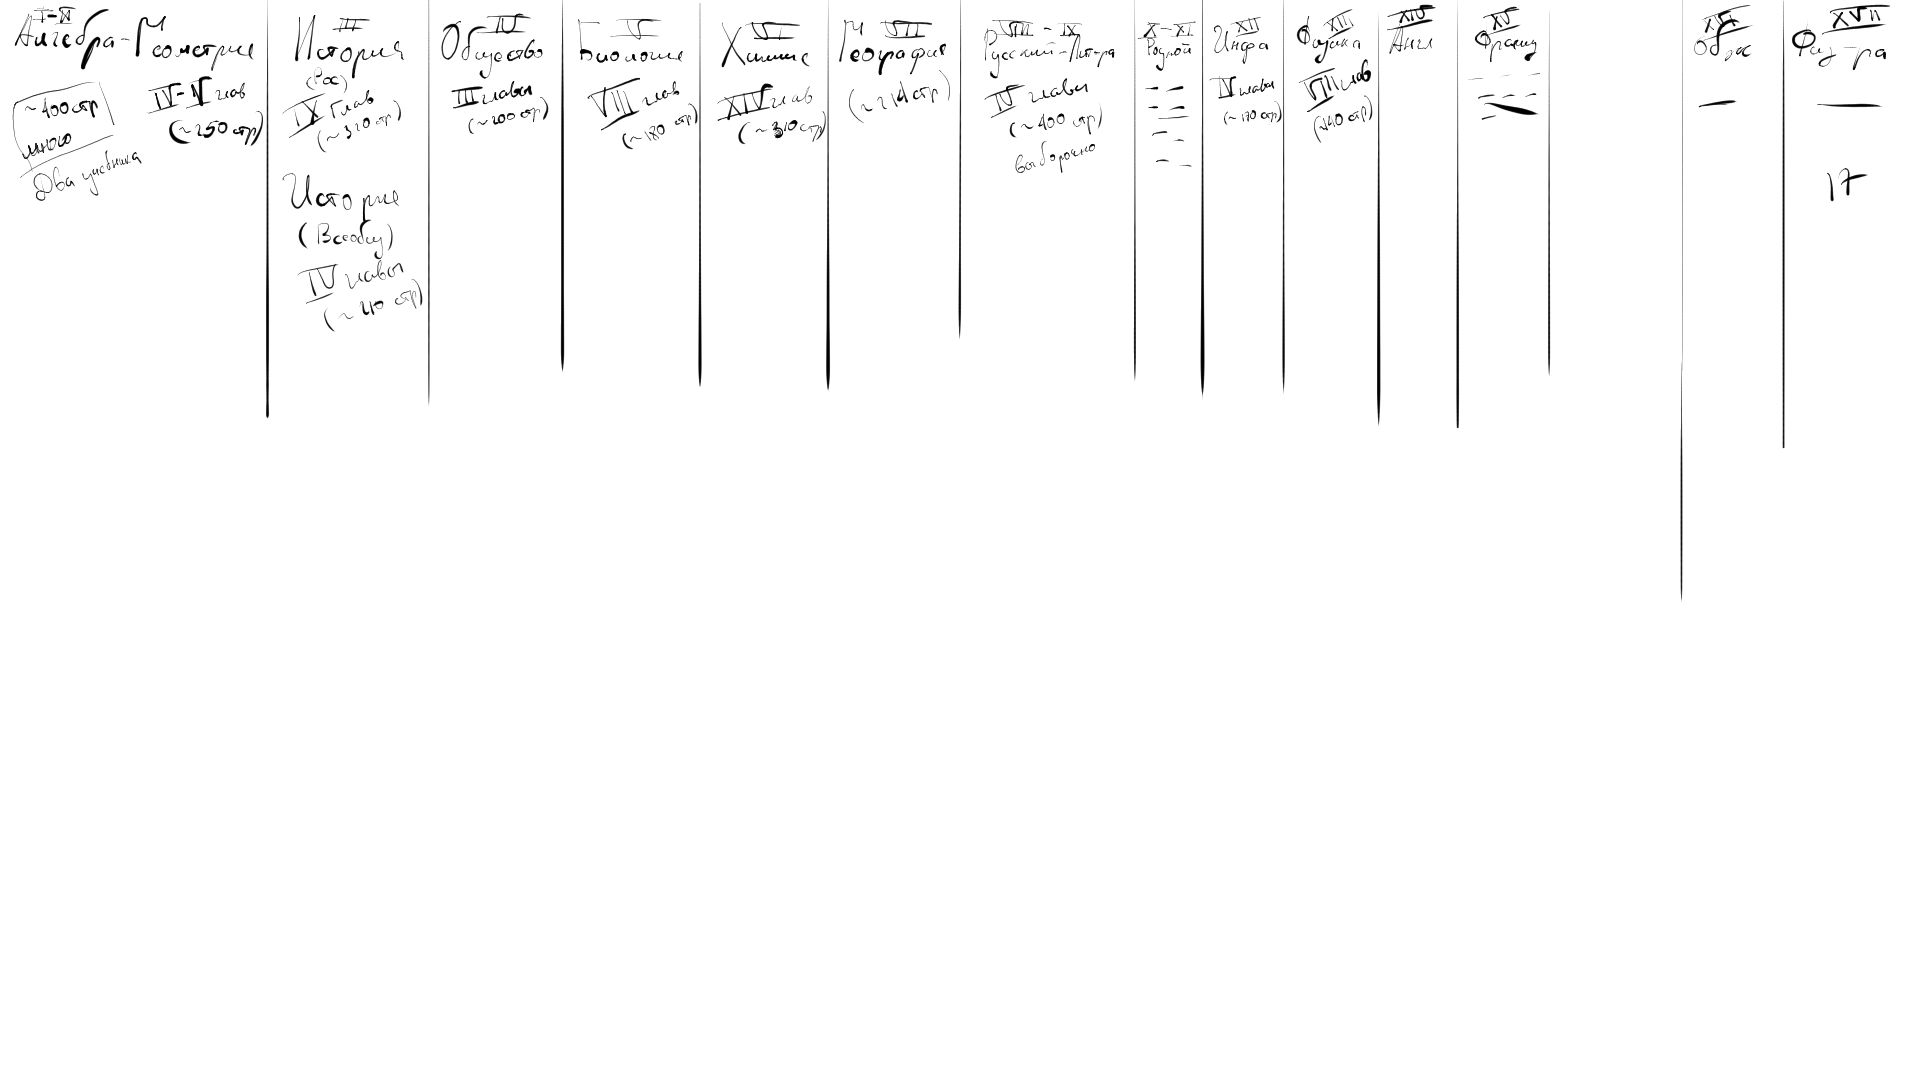 I-II
Алгебра-Геометрия
~400стр
много
Два учебника
IV-V глав
(~250 стр)
III
История
(Рос)
IX Глав
(~320 стр)
История
(Всеобщ)
IV главы
(~210 стр)
IV
Общество
III главы
(~200 стр)
V
Биология
VIII глав
(~180 стр)
VI
Химия
XIV глав
(~310 стр)
VII
География
(~214 стр)
VIII - IX
Русский-Лит-ра
IV главы
(~400 стр)
выборочно
X-XI
Родной
XII
Инфа
IV главы
(~170 стр)
XIII
Физика
VIII глав
(~140 стр)
XIV
Англ
XV
Франц
XVI
XVII
Физ-ра
17